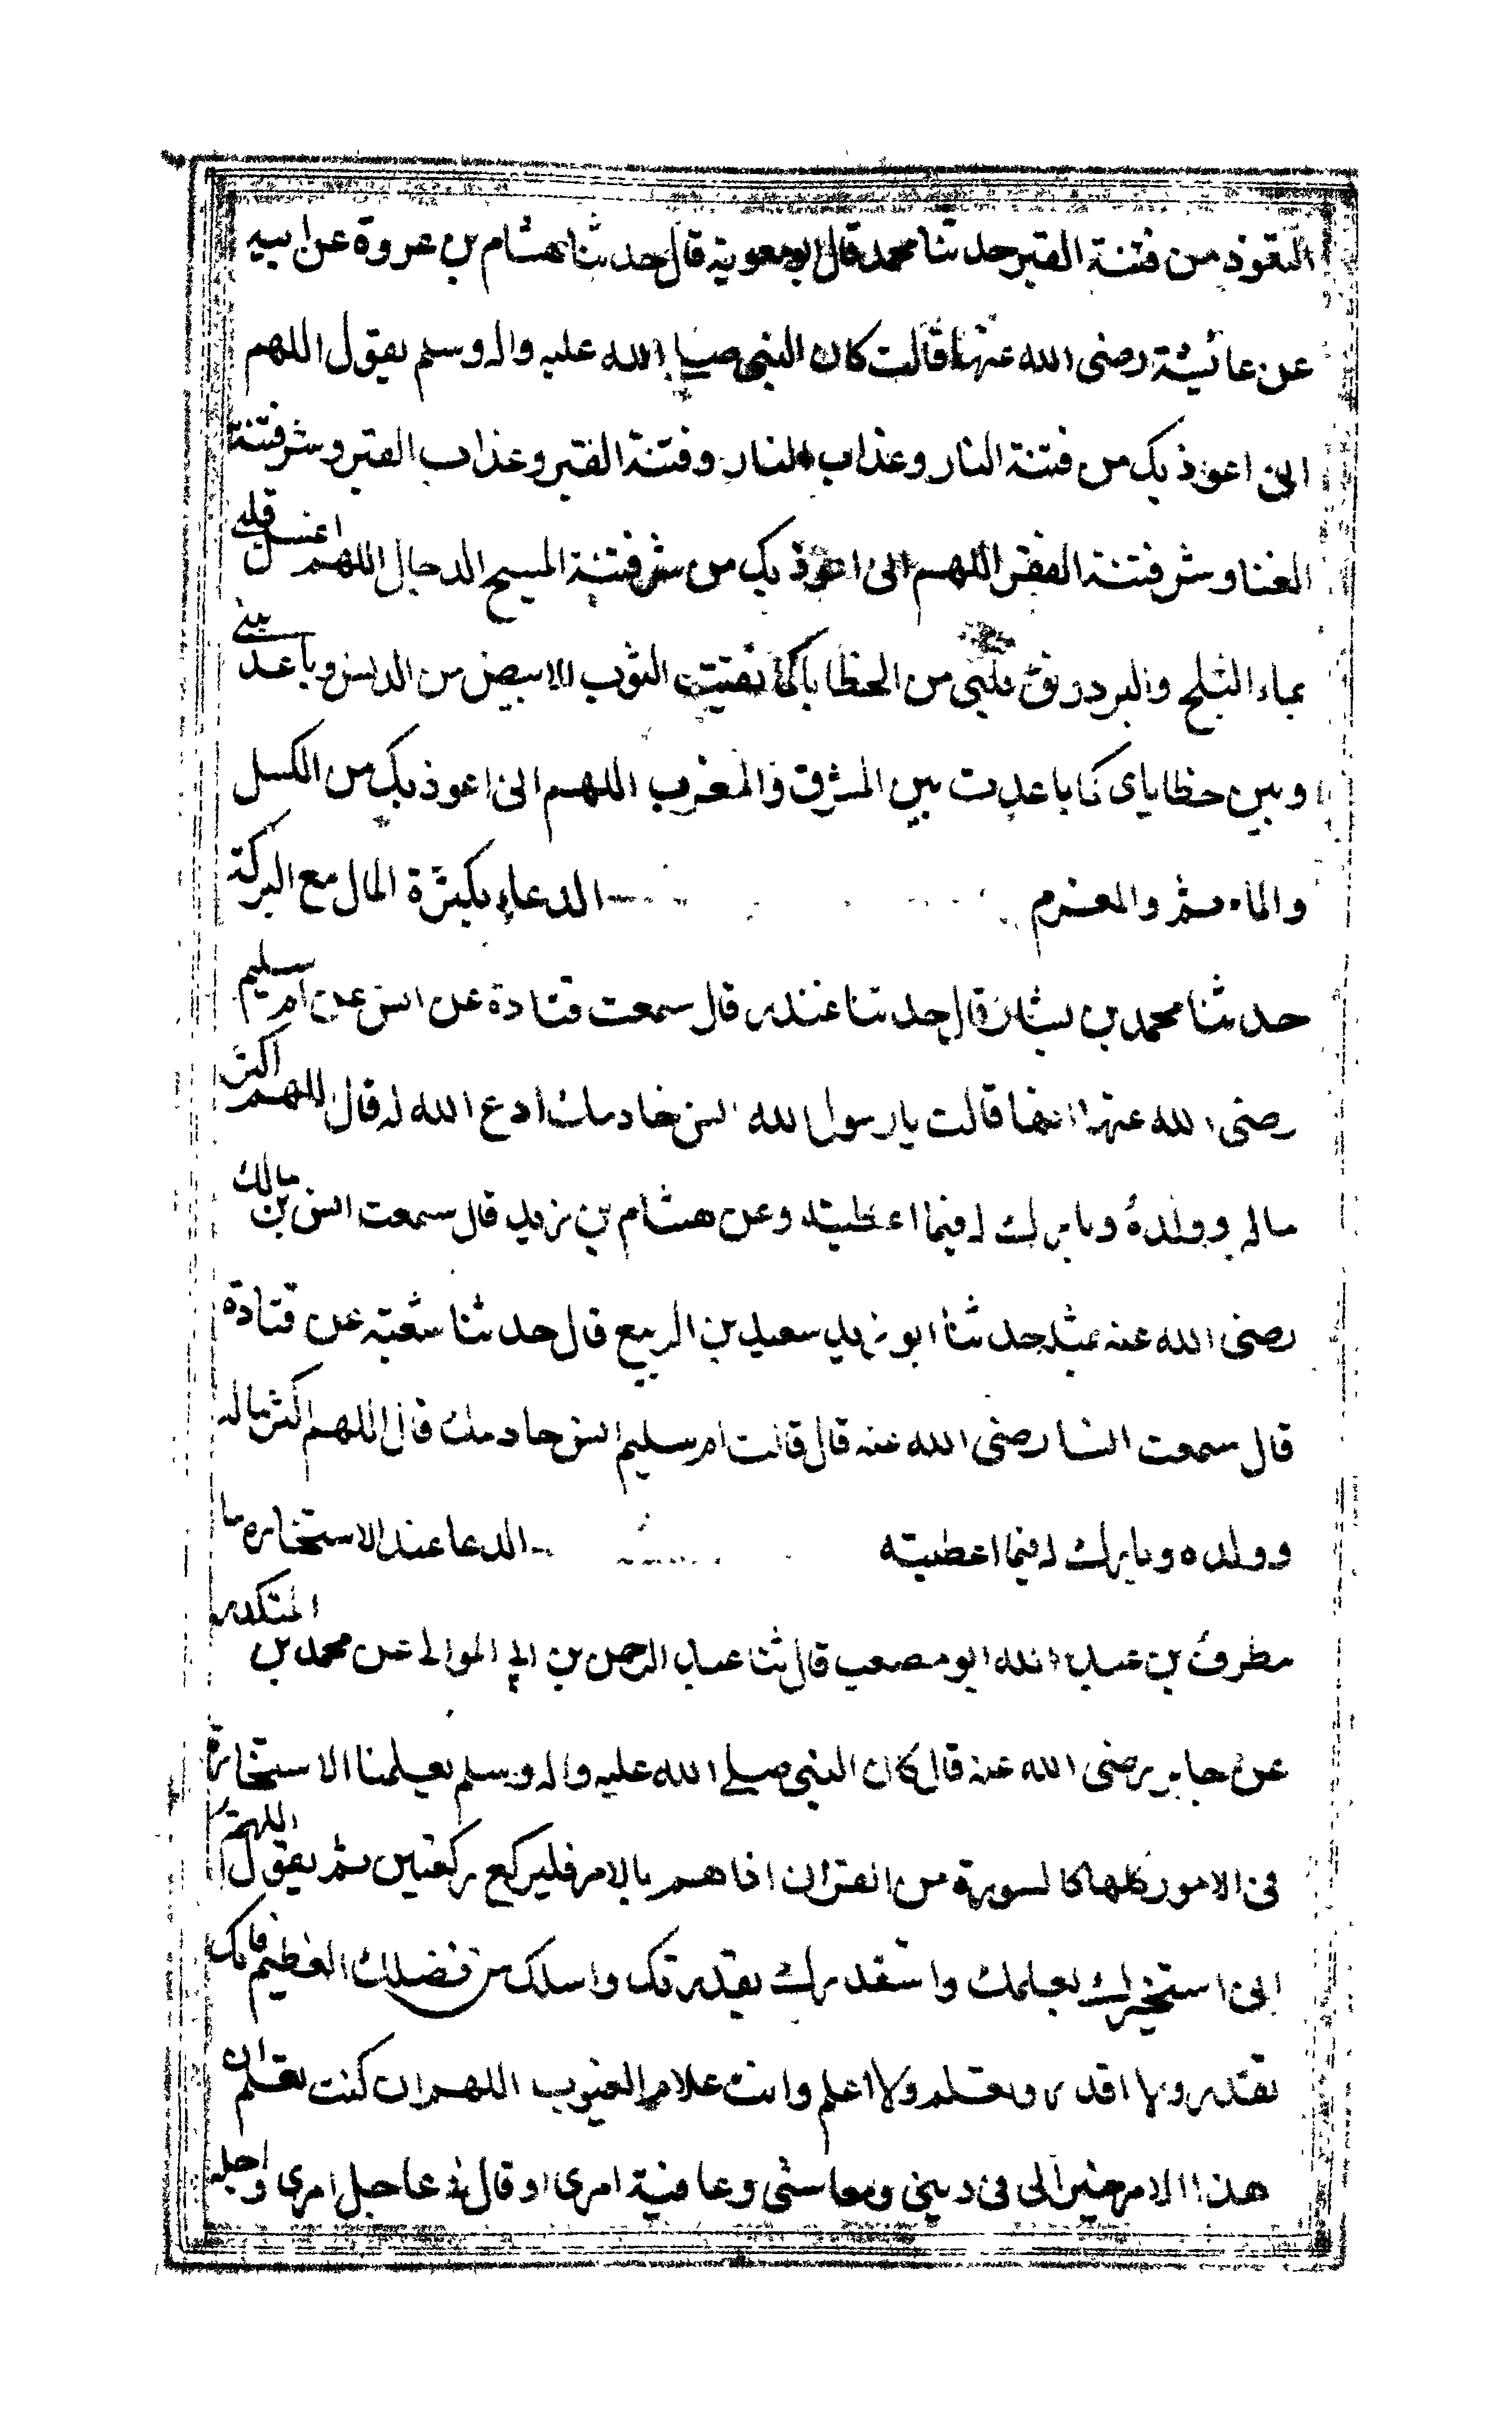 التعوذ من فتنة القبر حدثنا محمد قال ابو معوية قال حدثنا هشام بن عروة عن ابيه
عن عائشة رضى الله عنها قالت كان النبى صلى الله عليه واله وسلم يقول اللهم
انى اعوذ بك من فتنة النار وعذاب النار وفتنة القبر وعذاب القبر وشر فتنة
الغنا وشر فتنة الفقر اللهم انى اعوذ بك من شر فتنة المسيح الدجال اللهم اغسل قلبى
بماء الثلج والبرد ونق قلبى من الخطايا كما نقيت الثوب الابيض من الدنس وباعد بينى
وبين خطاياى كما باعدت بين المشرق والمغرب اللهم انى اعوذ بك من الكسل
والمأثم والمغرم الدعاء بكثرة المال مع البركة
حدثنا محمد بن بشار قال حدثنا غندر قال سمعت قتادة عن انس عن ام سليم
رضى الله عنها انها قالت يا رسول الله انس خادمك ادع الله له قال اللهم اكثر
ماله وولده وبارك له فيما اعطيته وعن هشام بن زيد قال سمعت انس بن مالك
رضى الله عنه مثله حدثنا ابو زيد سعيد بن الربيع قال حدثنا شعبة عن قتادة
قال سمعت انسا رضى الله عنه قال قالت ام سليم انس خادمك قال اللهم اكثر ماله
وولده وبارك له فيما اعطيته الدعا عند الاستخاره ما
مطرف بن عبد الله ابو مصعب قال ثنا عبد الرحمن بن ابى الموالى عن محمد بن المنكدر
عن جابر رضى الله عنه قال كان النبى صلى الله عليه واله وسلم يعلمنا الاستخارة
فى الامور كلها كالسورة من القران اذا هم بالامر فليركع ركعتين ثم يقول اللهم
انى استخيرك بعلمك واستقدرك بقدرتك واسلك من فضلك العظيم فانك
تقدر ولا اقدر وتعلم ولا اعلم وانت علام الغيوب اللهم ان كنت تعلم ان
هذا الامر خير لى فى دينى ومعاشى وعاقبة امرى او قال فى عاجل امرى واجله